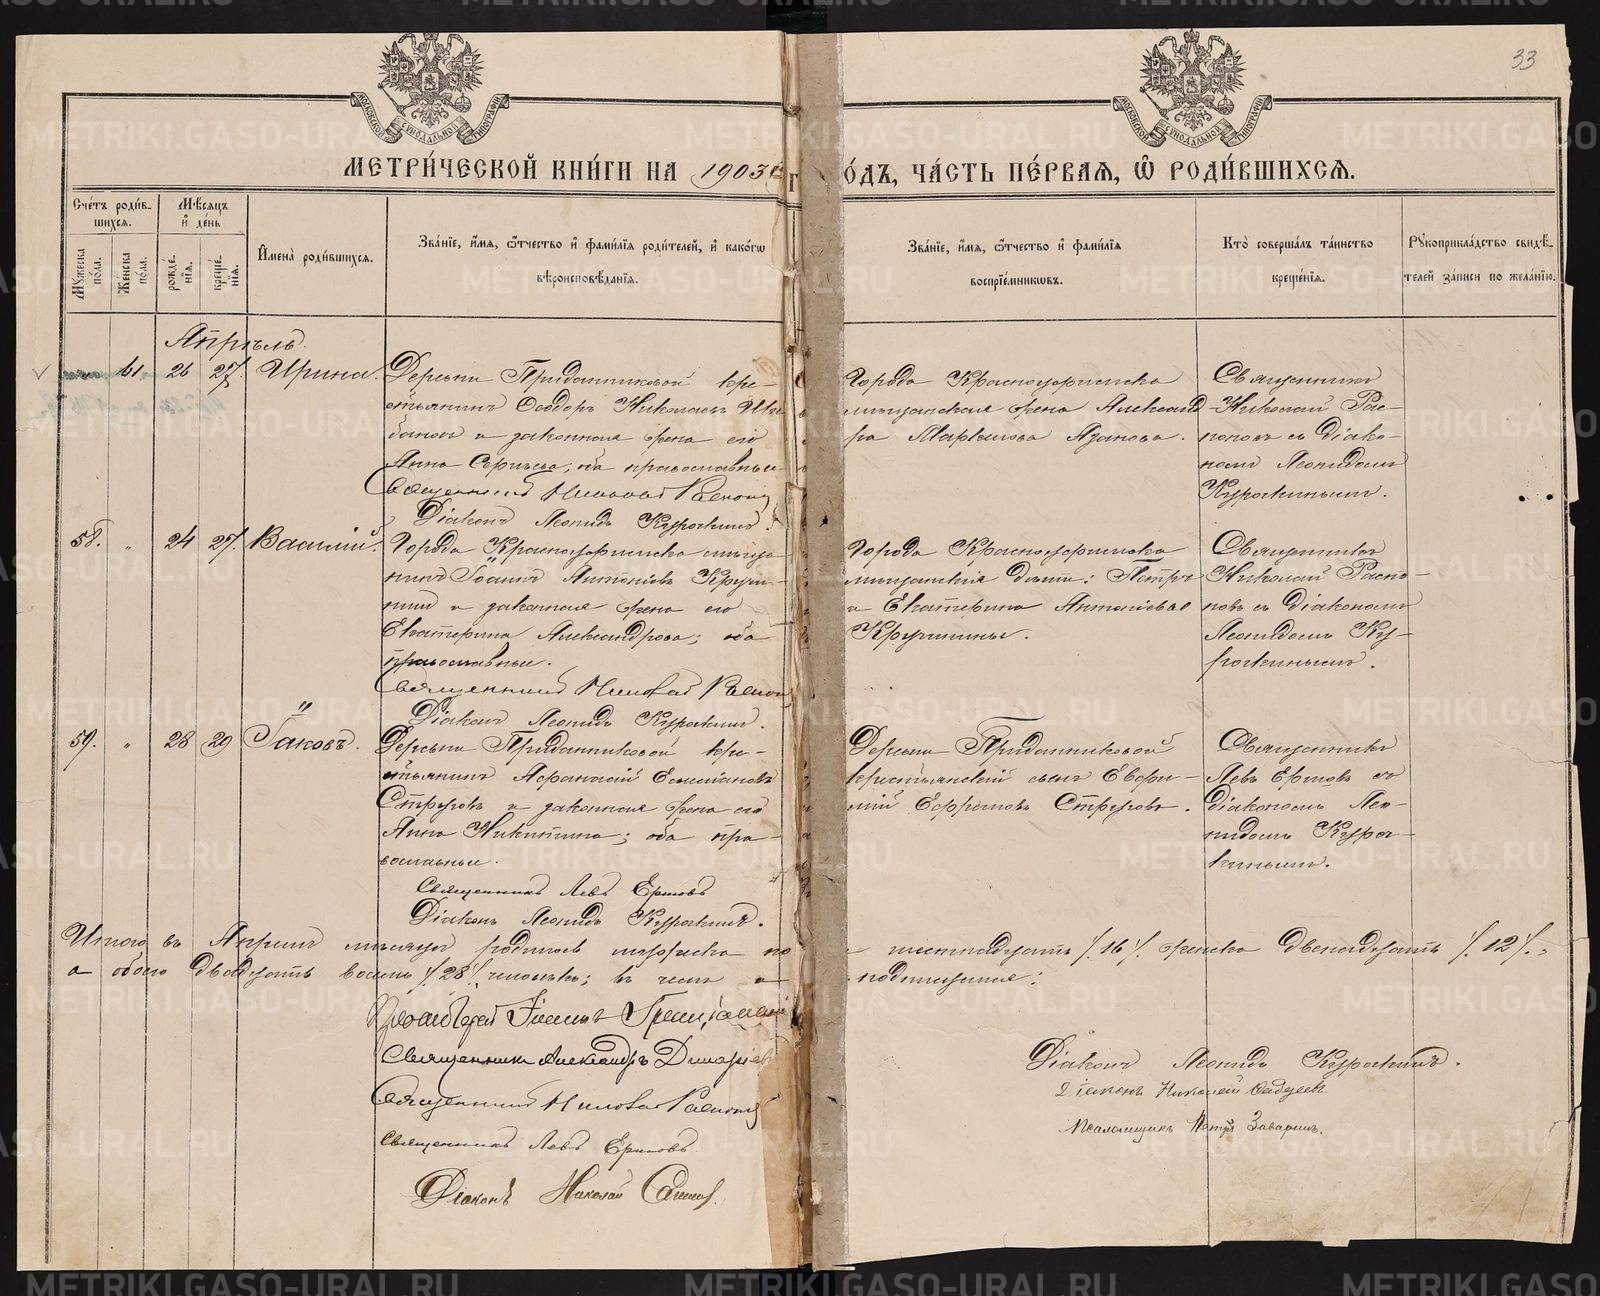 33
МОСКОВСКОЙ СѴНОДАЛЬНОЙ ТИПОГРАФІИ
МОСКОВСКОЙ СѴНОДАЛЬНОЙ ТИПОГРАФІИ
МЕТРИ́ЧЕСКОЙ КНИ́ГИ НА 1903й Г
О́ДЪ, ЧА́СТЬ ПЕ́РВАѦ, Ѽ РОДИ́ВШИХСѦ.
Сче́тъ роди́в-
шихсѧ.
Мѣ́сѧцъ
и҆ де́нь
Мꙋ́жеска
пола.
Же́нска
пола.
рожде́-
нїѧ.
креще́-
нїѧ.
И҆мена̀ роди́вшихсѧ.
Зва́нїе, и҆́мѧ, ѻ҆́тчество и҆ фами́лїѧ роди́телей, и҆ како́гѡ
вѣроисповѣ́данїѧ.
Зва́нїе, и҆́мѧ, ѻ҆́тчество и҆ фами́лїѧ
воспрїе́мникѡвъ.
Кто̀ соверша́лъ та́инство
креще́нїѧ.
Рꙋкоприкла́дство свидѣ́-
телей за́писи по жела́нїю.
Апрѣль.
" 61 26 27. Ирина.
Деревни Приданниковой кре-
стьянинъ Ѳеодоръ Николаевъ
и законная жена его
Анна Сергѣева; оба православные
Священникъ Николай
Діаконъ Леонидъ Курочкинъ.
Города Красноуфимска
мѣщанская жена Александ-
ра Маркелова Азанова.
Священникъ
Николай Рас-
поповъ съ діако-
номъ Леонидомъ
Курочкинымъ.
58. " 24 27. Василій.
Города Красноуфимска мѣща-
нинъ Іоаннъ Антоніевъ Кручи-
нинъ и законная жена его
Екатерина Александрова; оба
православные.
Священникъ Николай
Діаконъ Леонидъ Курочкинъ.
Города Красноуфимска
мѣщанскія дѣти: Петръ
и Екатерина Антоніевы
Кручинины.
Священникъ
Николай Распо-
повъ съ діакономъ
Леонидомъ Ку-
рочкинымъ.
59. " 28 29 Іаковъ.
Деревни Приданниковой кре-
стьянинъ Аѳанасій
и законная жена его
Анна Никитина; оба пра-
вославные.
Священникъ Левъ Ершовъ
Діаконъ Леонидъ Курочкинъ.
Деревни Приданниковой
крестьянскій сынъ Евѳи-
мій Ефремовъ
Священникъ
Левъ Ершовъ съ
діакономъ Лео-
нидомъ Куроч-
кинымъ.
Итого въ Апрѣлѣ мѣсяцѣ родилось мужеска по
шестнадцать /.16/. женска двенадцать /.12/.,
а обоего двадцать восемь /.28/. человѣкъ; въ чемъ и
подпишемся:
Протоіерей
Священникъ Александръ
Священникъ Николай
Священникъ Левъ Ершовъ.
Діаконъ Николай
Діаконъ Леонидъ Курочкинъ.
Діаконъ Николай
Псаломщикъ Петръ Заваринъ.
METRIKI.GASO-URAL.RU